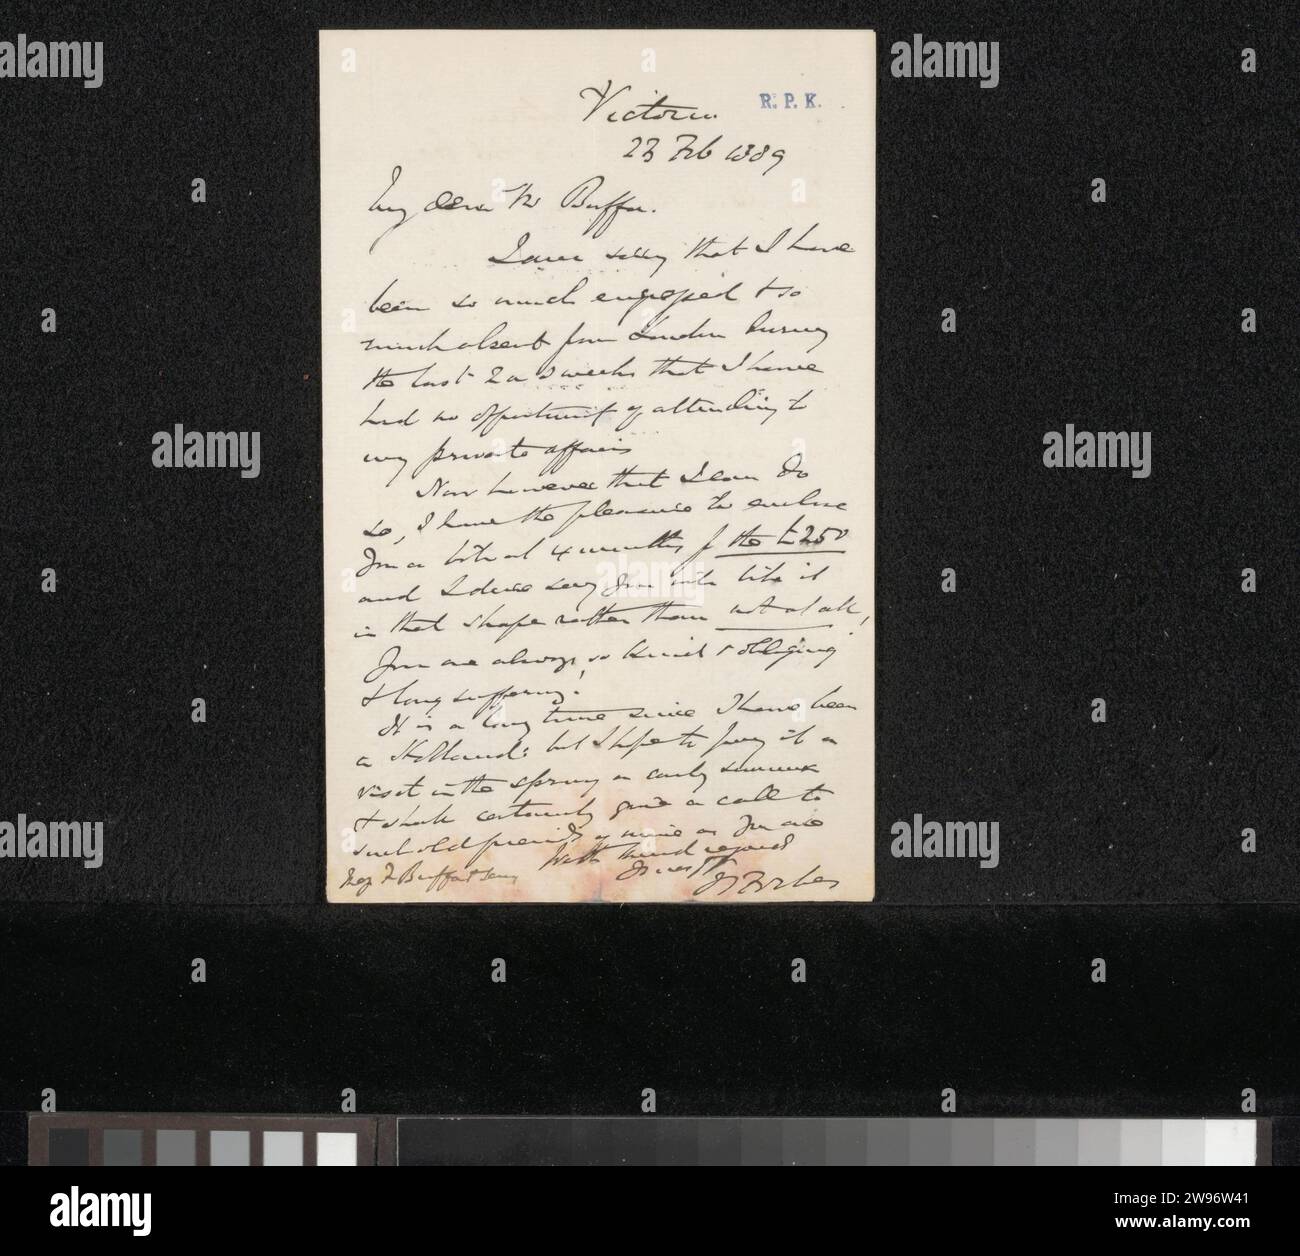 R. P. K.
Victoria
23 Feb 1889
My dear Mr Buffa.
I am sorry that I have
been so much engaged & so
much absent from London during
the last 2 or 3 weeks that I have
had no opportunity of attending to
my private affairs
Now however that I can do
so, I have the pleasure to enclose
you a bill at 4 months for the £250
and I dare say you will like it
in that shape rather than not at all,
You are always so kind & obliging
& long suffering!
It is a long time since I have been
in Holland: but I hope to pay it a
visit in the spring or early summer
& shall certainly give a call to
such old friends of mine as you are
With kind regards
Yours
J S Forbes
Buffa & Sons
alamy
a
Image ID: 2W96W41
www.alamy.com